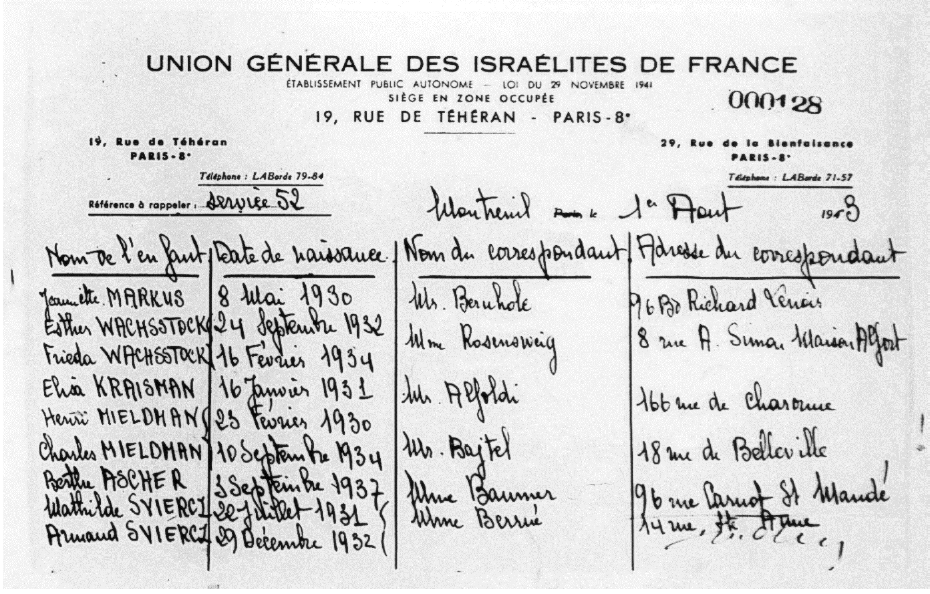 UNION GÉNÉRALE DES ISRAÉLITES DE FRANCE
ÉTABLISSEMENT PUBLIC AUTONOME — LOI DU 29 NOVEMBRE 1941
SIÈGE EN ZONE OCCUPÉE
000128
19, RUE DE TÉHÉRAN - PARIS-8e
19, Rue de Téhéran
PARIS-8e
29, Rue de la Bienfaisance
PARIS-8e
Téléphone : LABorde 79-84
Téléphone : LABorde 71-57
Référence à rappeler : Service 52
Montreuil Paris le 1er Août 1943
Nom de l'enfant Date de naissance Nom du correspondant Adresse du correspondant
Jeannette MARKUS 8 Mai 1930 Mr. Bernhole 96 Bd Richard Lenoir
Esther WACHSSTOCK 24 Septembre 1932 Mme Rosensweig 8 rue A. Simon Maison Alfort
Frieda WACHSSTOCK 16 Février 1934
Elisa KRAISMAN 16 Janvier 1931 Mr. Alfoldi 166 rue de Charonne
Henri MIELDMAN 23 Février 1930
Charles MIELDMAN 10 Septembre 1934 Mr. Bajtel 18 rue de Belleville
Berthe ASCHER 3 Septembre 1937 Mme Baumer 96 rue Carnot St Mandé
Mathilde SVIERCZ 22 Juillet 1931 Mme Berrié 14 rue
Armand SVIERCZ 29 Décembre 1932